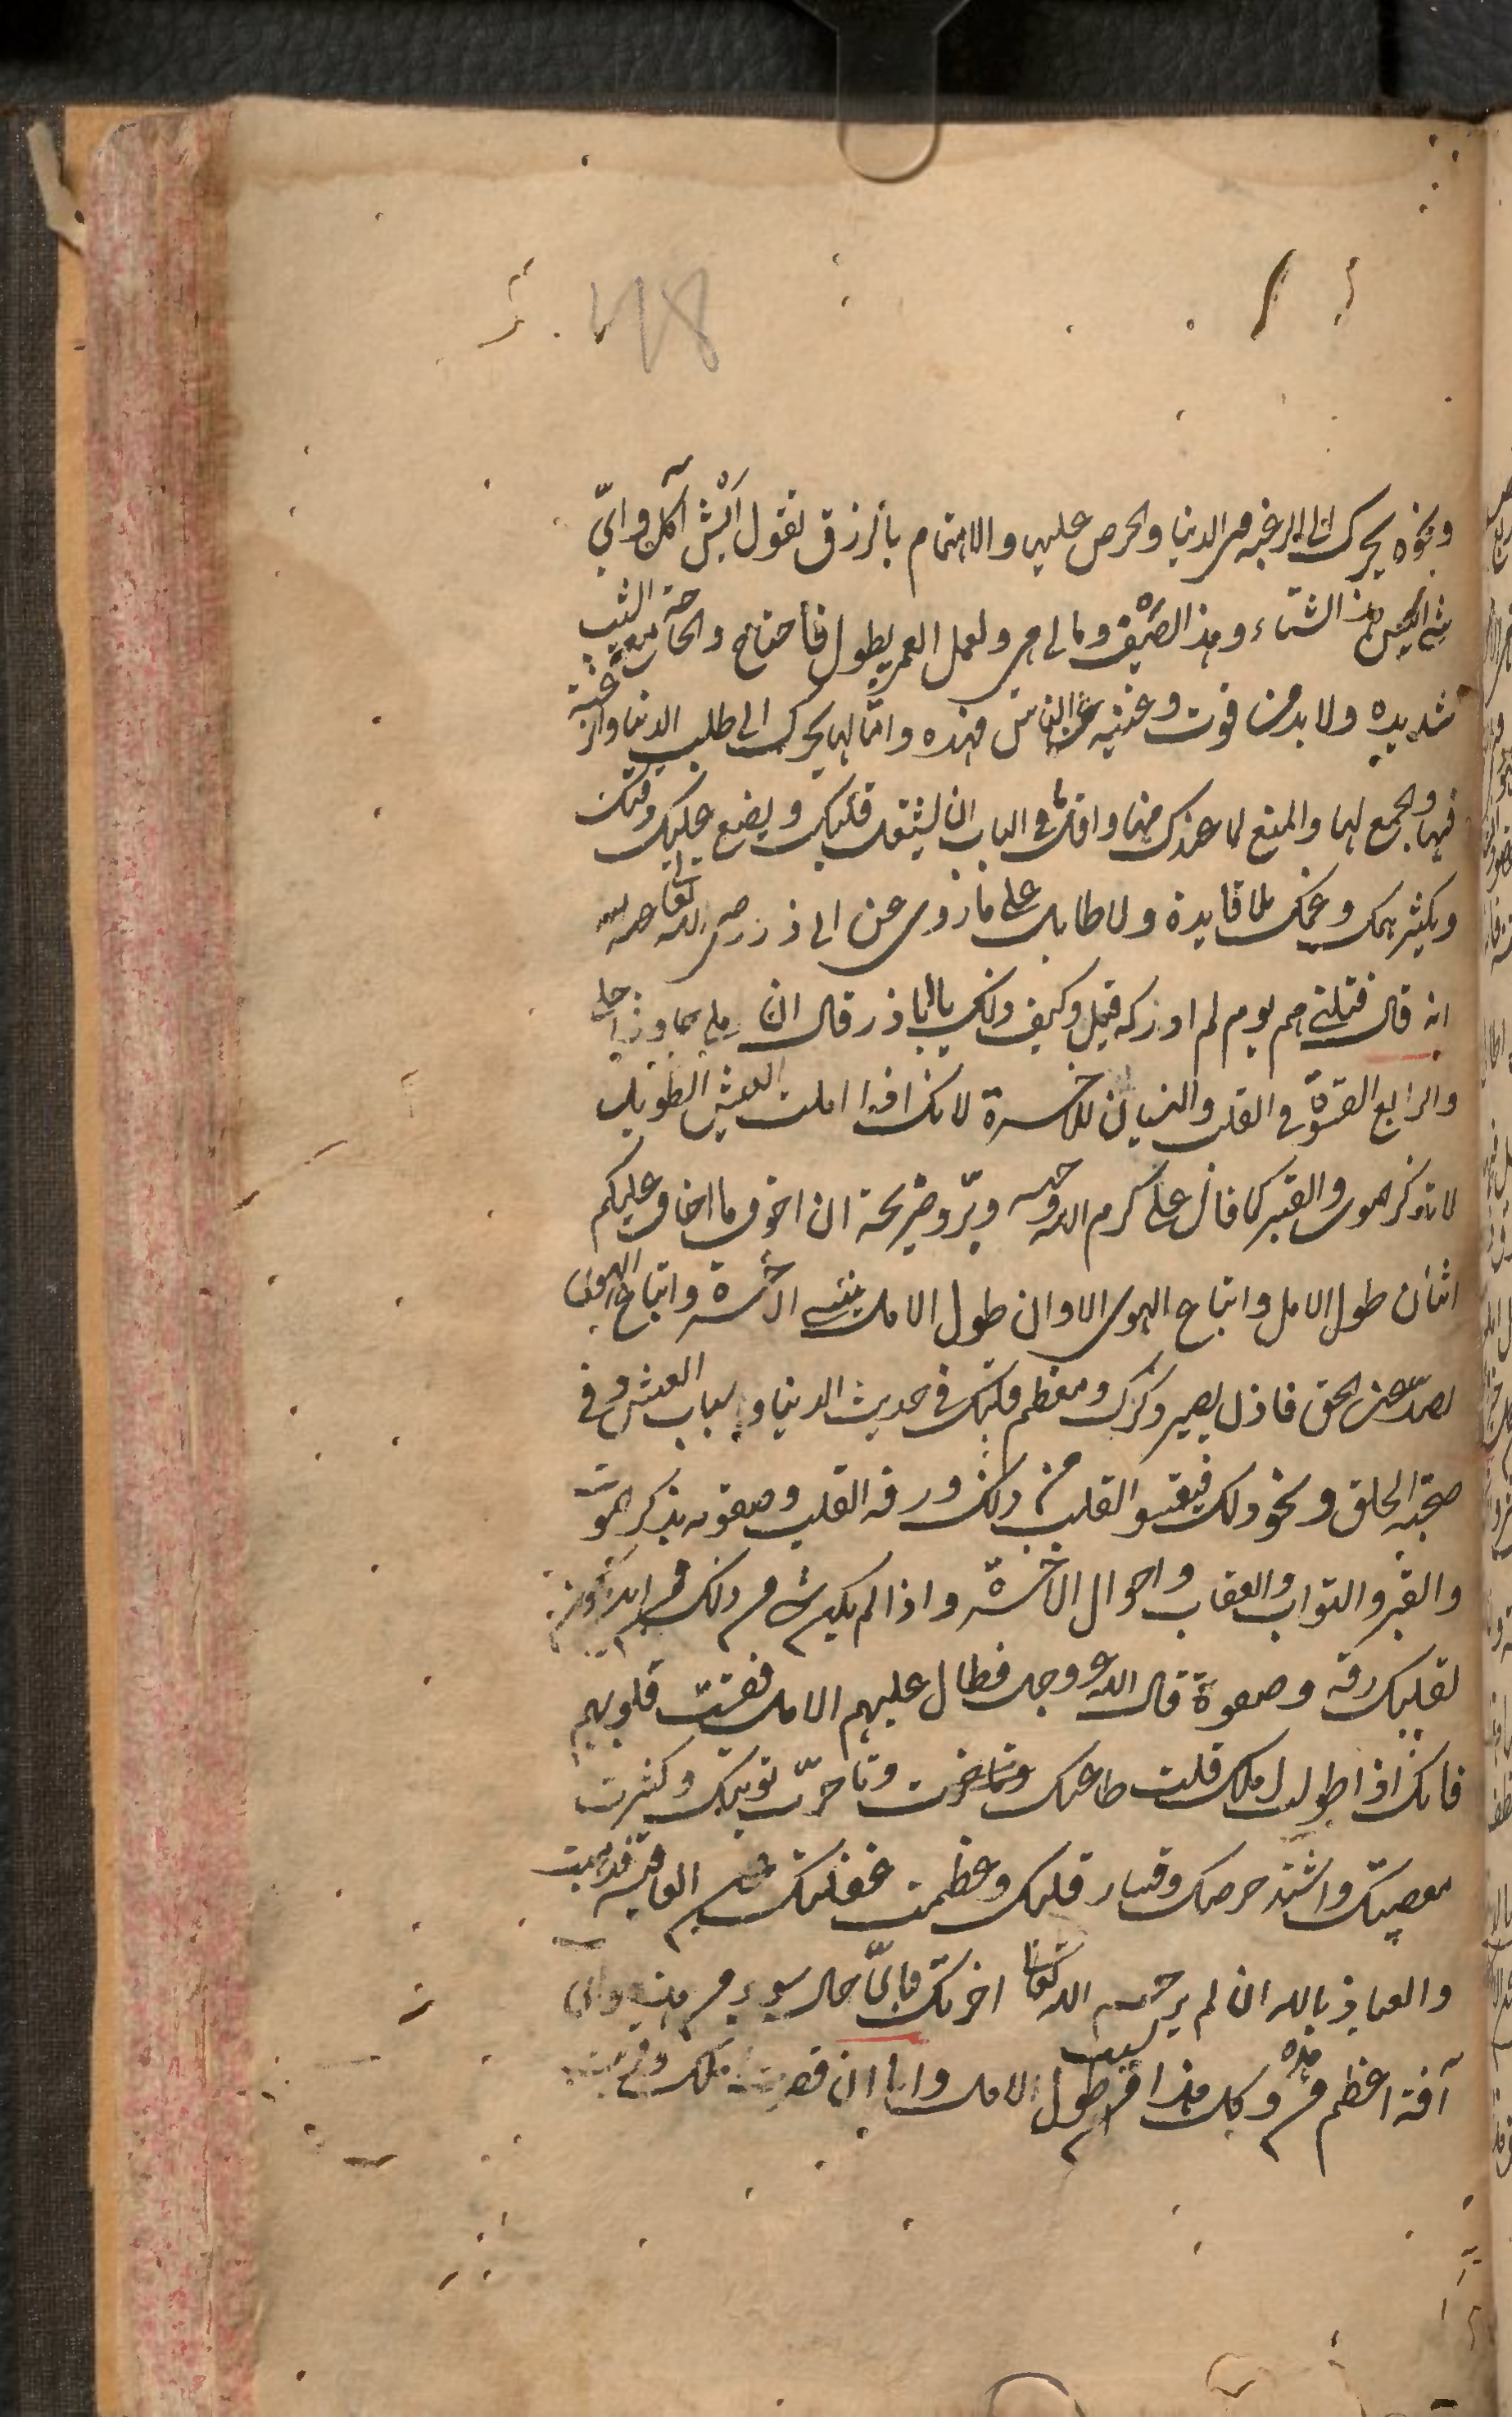 ونحوه يحرك الى الرغبه فى الدنيا والحرص عليها والاهتمام بالرزق تقول ايش آكل واىّ
شئ البس هذا الشتاء وهذا الصيف ومالى شى ولعل العمر يطول فأحتاج والحاجة مع الشيب
شديده ولا بد من قوت وغنيه عن الناس فهذه وامثالها يحرك الى طلب الدنيا والرغبة
فيها والجمع لها والمنع لما عندك منها واقل ما فى الباب ان يشغل قلبك ويضيع عليك وقتك
ويكثر همك وغمك بلا فايدة ولا طايل على ما روى عن ابى ذر رضى الله تعالى عنه
انه قال قتلنى هم يوم لم ادركه قيل وكيف ذلك يا ابا ذر قال ان املى جاوز اجلى
والرابع القسوة فى القلب والنسيان للاخرة لانك اذا املت العيش الطويل
لا تذكر الموت والقبر كما قال على كرم الله وجهه وبرّد ضريحة ان اخوف ما اخاف عليكم
اثنان طول الامل واتباع الهوى الا وان طول الامل ينسى الاخرة واتباع الهوى
يصدّ عن الحق فاذن يصير ذكرك ومعظم فكرك فى حديث الدنيا واسباب العيش وفى
صحبة الخلق ونحو ذلك فيقسو القلب من ذلك ورقه القلب وصفوته بذكر الموت
والقبر والثواب والعقاب واحوال الاخرة واذا لم يكن شى من ذلك فمن اين تكون
لقلبك رقة وصفوة قال الله عز وجل فطال عليهم الامد فقست قلوبهم
فانك اذا طولت املك قلت طاعتك وتاخرت توبتك وكثرت
معصيتك واشتد حرصك وقسا قلبك وعظمت غفلتك العاقبة فذهبت
والعياذ بالله ان لم يرحم الله تعالى اخرتك فاىّ حال سوء من هذه واى
آفة اعظم من هذه وكل هذا من سبب طول الامل واما ان قصرت املك